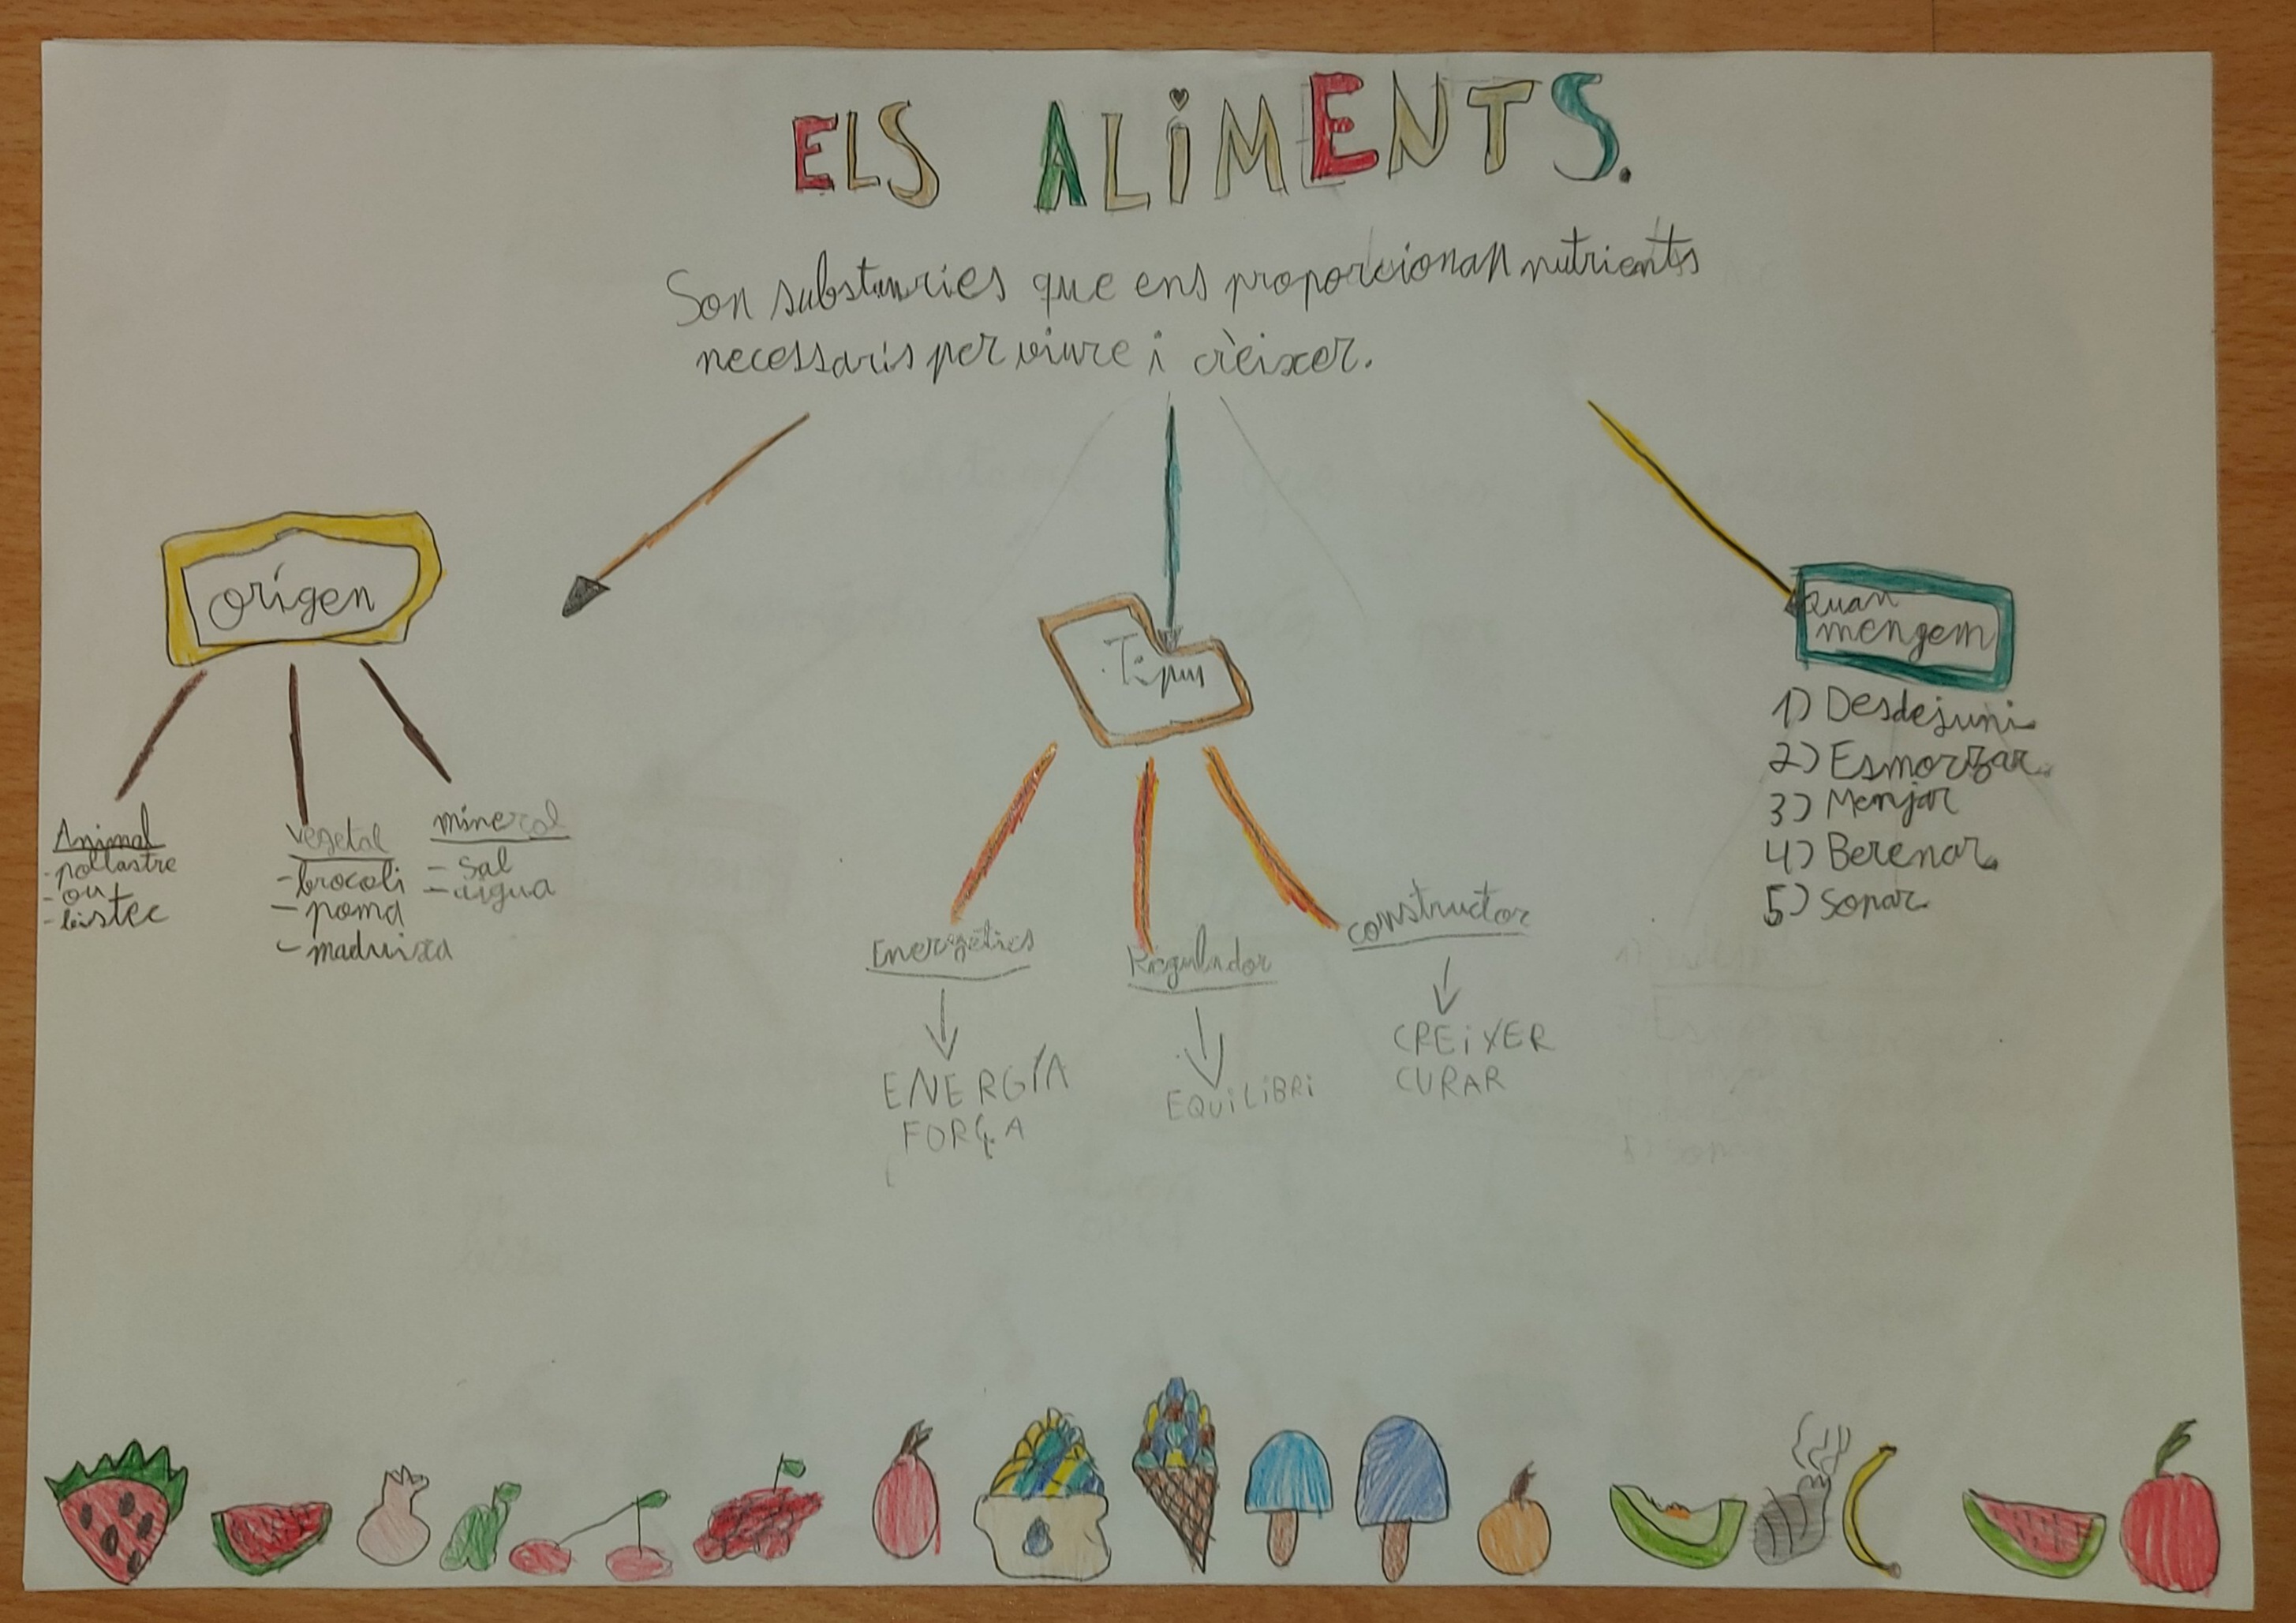 ELS ALiMENTS.
Son substancies que ens proporcionan nutrients
necessaris per viure i crèixer.
orígen
Animal
-pollastre
-ou
-bistec
vegetal
-brocoli
-poma
-maduixa
mineral
-sal
-aigua
Tipus
Energètics
ENERGÍA
FORÇA
Regulador
EQUiLiBRi
constructor
CREiXER
CURAR
quan
mengem
1) Desdejuni
2) Esmorzar
3) Menjar
4) Berenar
5) Sopar